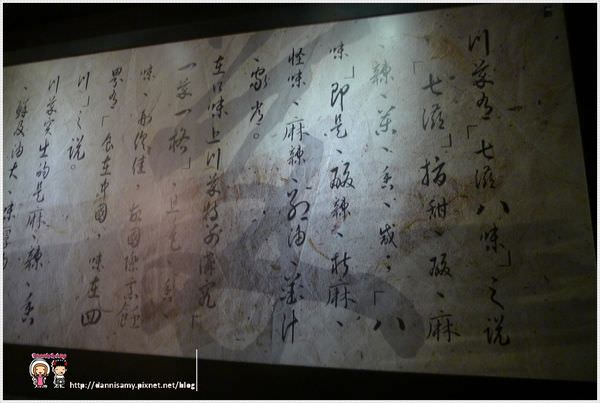 川菜有「七滋八味」之說
「七滋」指甜、酸、麻
、辣、苦、香、咸；「八
味」即是、酸辣、椒麻、
怪味、麻辣、紅油、薑汁
、家常。
在口味上川菜特別講究「
一菜一格」、且色、香、
味、形俱佳、故國際烹飪
界有「食在中國、味在四
川」之說。
川菜突出的是麻、辣、香
、鮮及油大、味厚
http://dannisamy.pixnet.net/blog